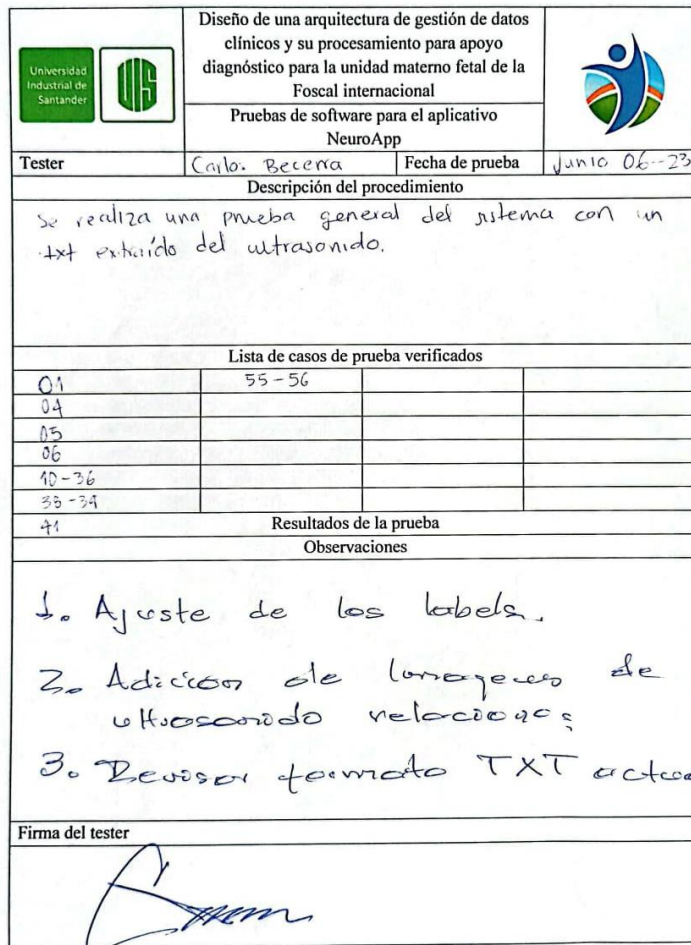 Universidad
Industrial de
Santander
UIS
Diseño de una arquitectura de gestión de datos
clínicos y su procesamiento para apoyo
diagnóstico para la unidad materno fetal de la
Foscal internacional
Pruebas de software para el aplicativo
NeuroApp
Tester Carlos Becerra Fecha de prueba Junio 06--23
Descripción del procedimiento
Se realiza una prueba general del sistema con un
txt extraído del ultrasonido.
Lista de casos de prueba verificados
01 55-56
04
05
06
10-36
41 Resultados de la prueba
Observaciones
1. Ajuste de los labels.
2. Adición de Imagenes de
ultrasonido
3. Revisar formato TXT
Firma del tester